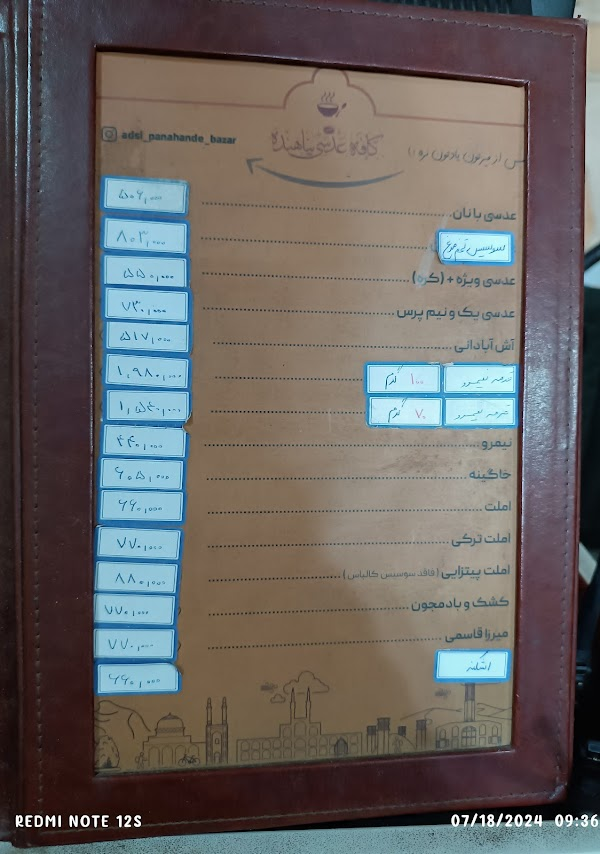 adsi_panahande_bazar
کافه عدسی پناهنده
عدسی با نان ۵۰۶,۰۰۰
سوسیس تخم مرغ ۸۰۳,۰۰۰
عدسی ویژه + (کره) ۵۵۰,۰۰۰
عدسی یک و نیم پرس ۷۳۰,۰۰۰
آش آبادانی ۵۱۷,۰۰۰
قرمه نیمرو ۱۰۰ گرم ۱,۹۸۰,۰۰۰
قرمه نیمرو ۷۰ گرم ۱,۵۴۰,۰۰۰
نیمرو ۴۴۰,۰۰۰
خاگینه ۶۰۵,۰۰۰
املت ۶۶۰,۰۰۰
املت ترکی ۷۷۰,۰۰۰
املت پیتزایی (فاقد سوسیس کالباس) ۸۸۰,۰۰۰
کشک و بادمجون ۷۷۰,۰۰۰
میرزا قاسمی ۷۷۰,۰۰۰
اشکنه ۶۶۰,۰۰۰
REDMI NOTE 12S
07/18/2024 09:36